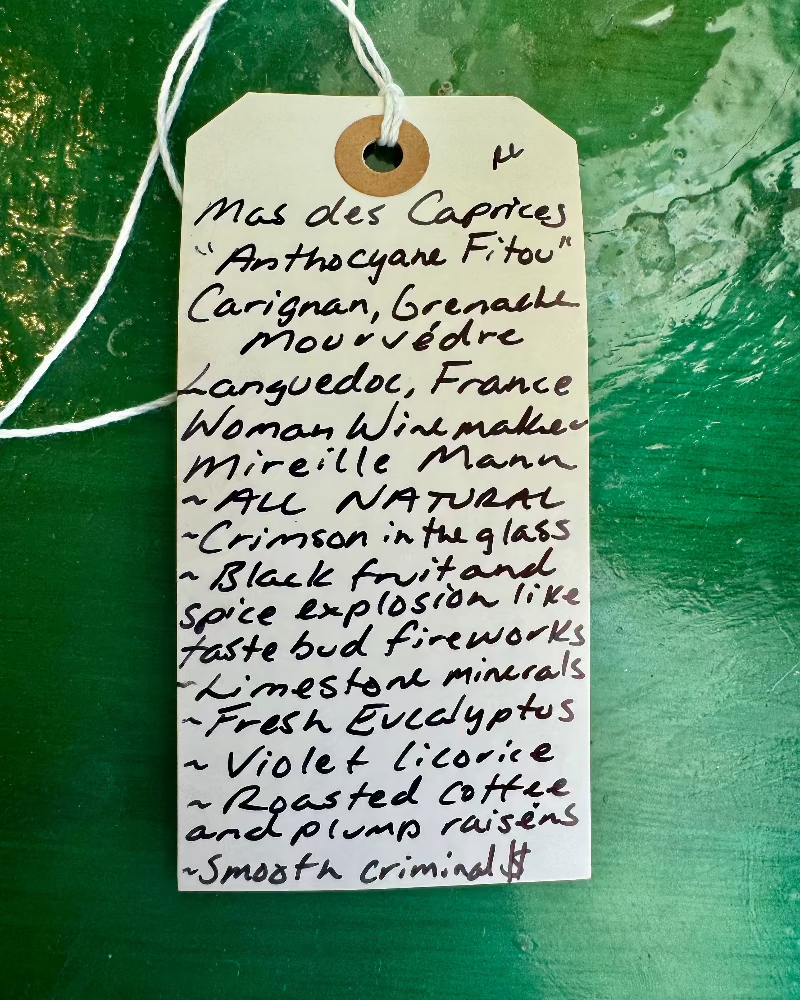 Mas des Caprices
"Anthocyane Fitou"
Carignan, Grenache
Mourvédre
Languedoc, France
Woman Winemaker
Mireille Mann
~ALL NATURAL
~Crimson in the glass
~ Black fruit and
spice explosion like
taste bud fireworks
~Limestone minerals
~Fresh Eucalyptus
~ Violet licorice
~ Roasted coffee
and plump raisens
~Smooth criminal